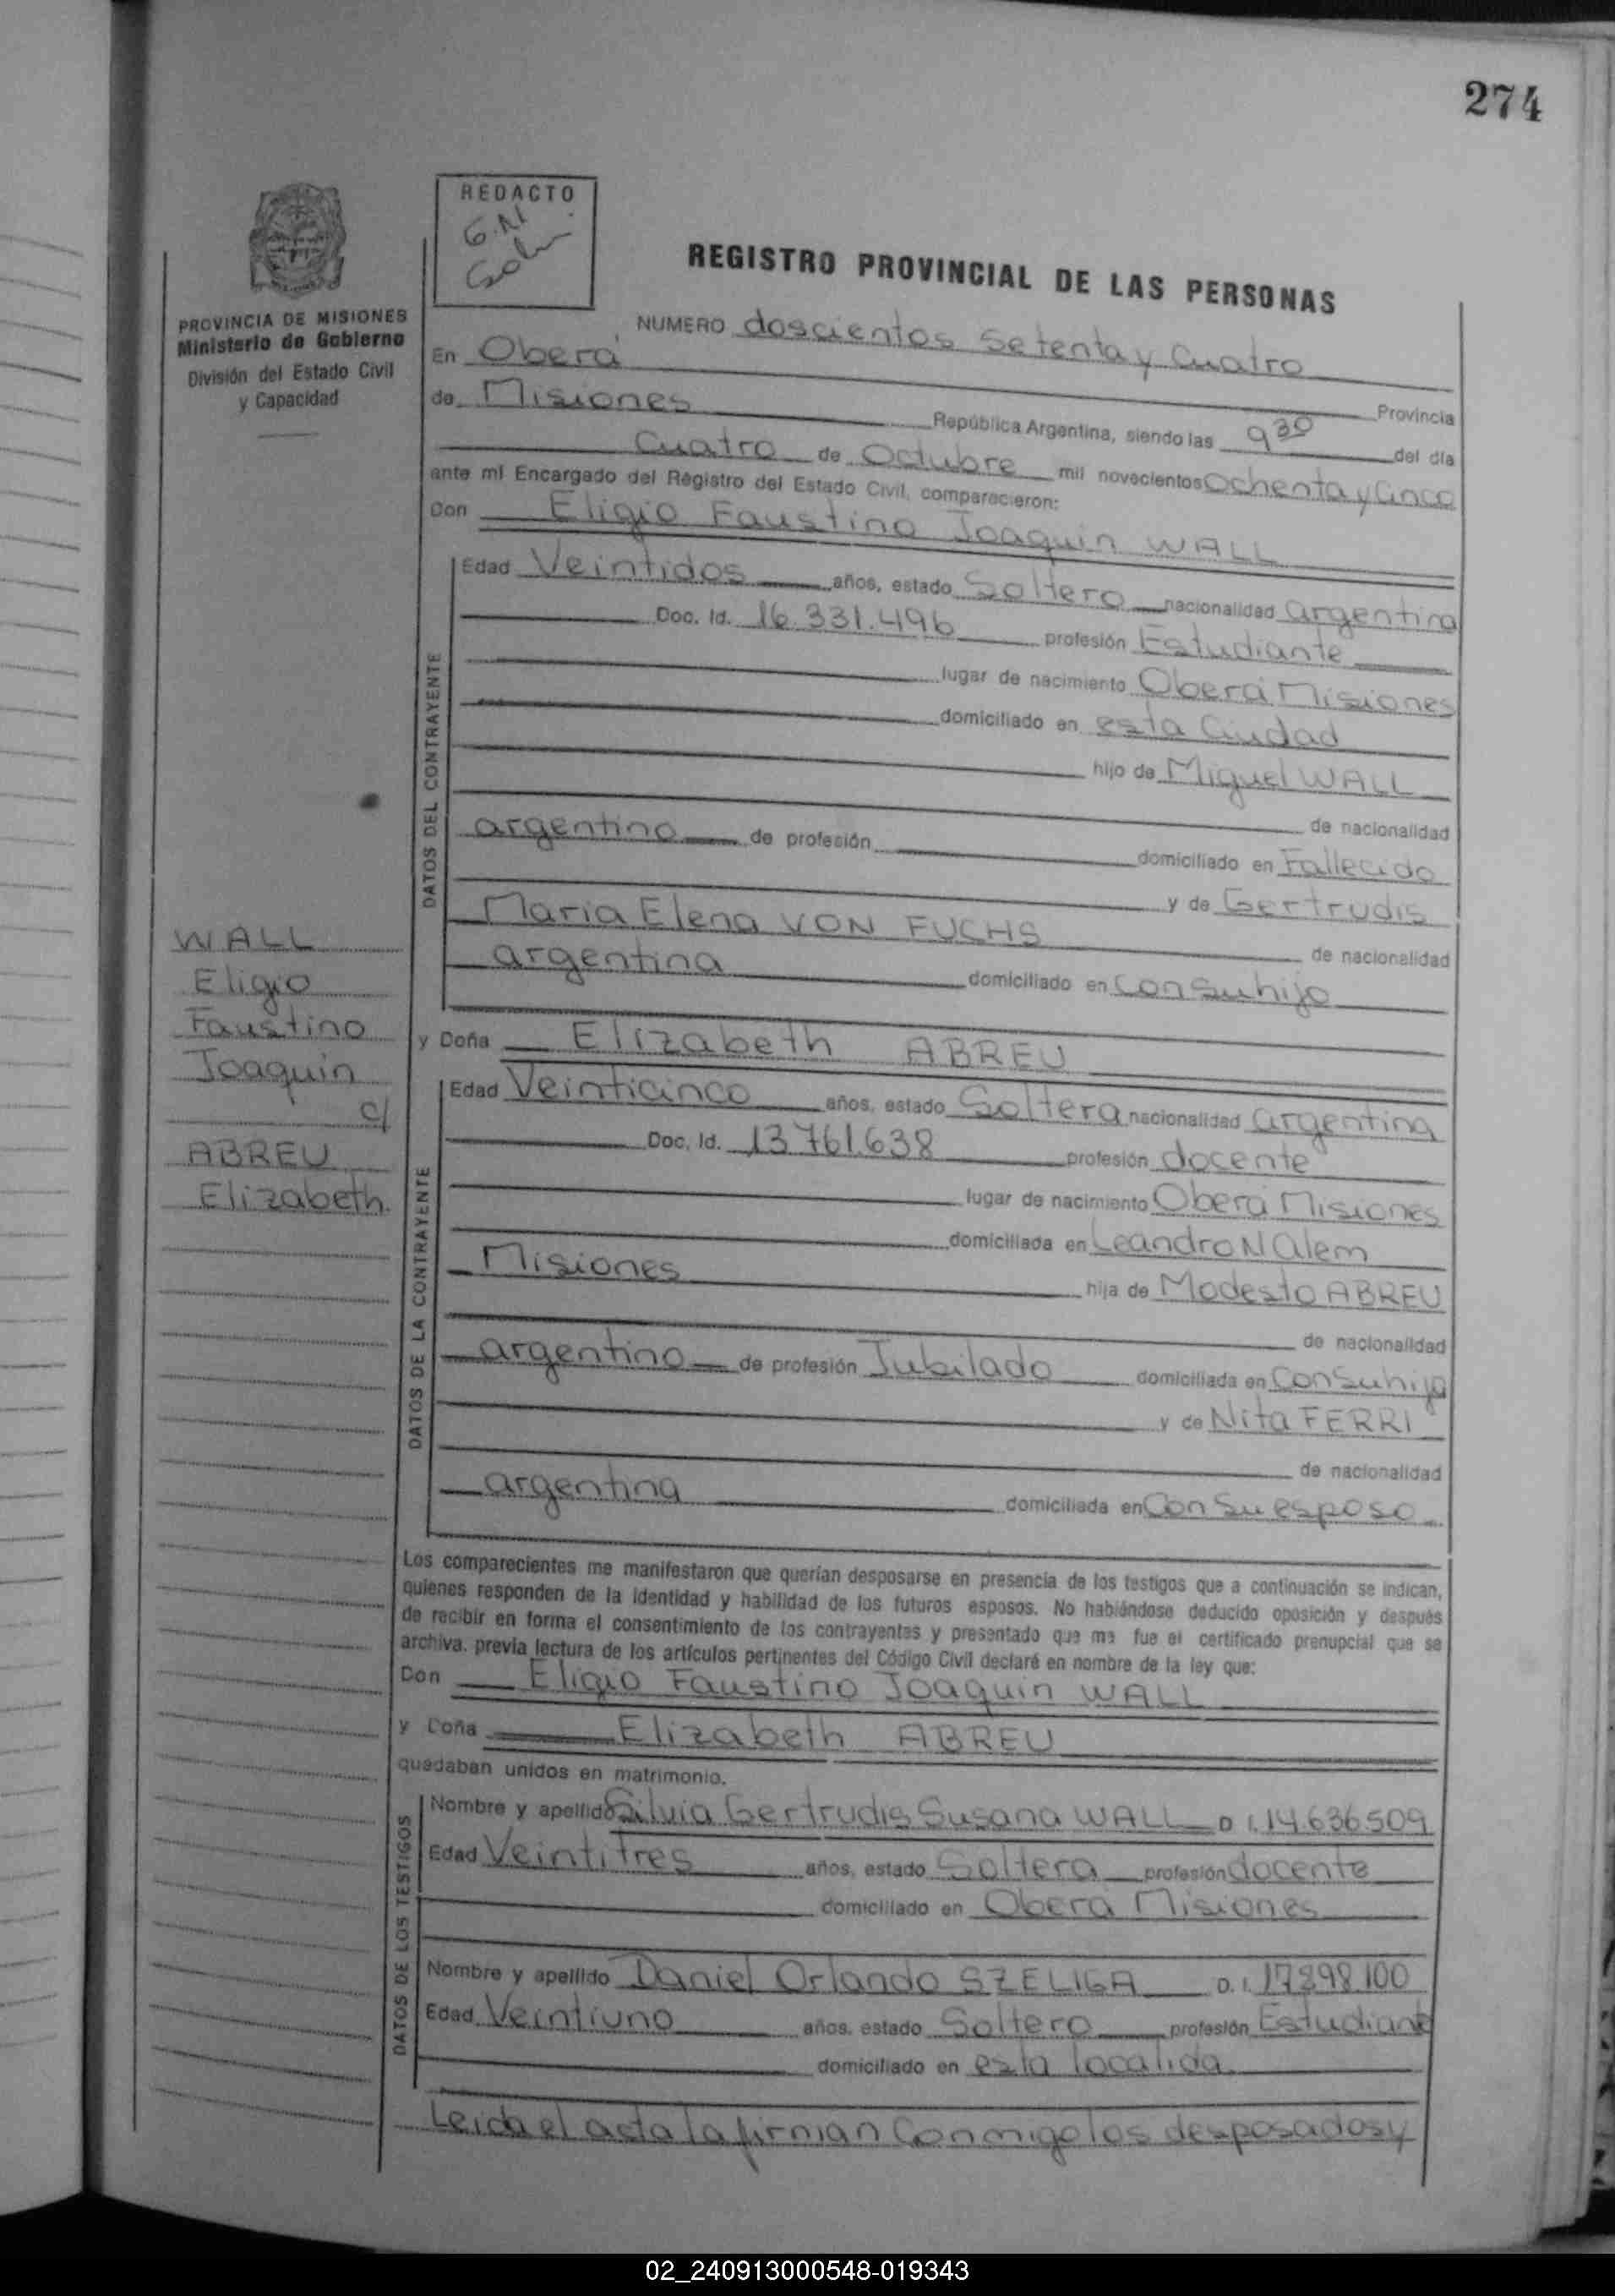 274
REDACTO
G.N
REGISTRO PROVINCIAL DE LAS PERSONAS
PROVINCIA DE MISIONES
Ministerio de Gobierno
División del Estado Civil
y Capacidad
NUMERO doscientos setenta y cuatro
En Oberá Provincia
de Misiones República Argentina, siendo las 9 30 del día
cuatro de Octubre mil novecientos Ochenta y Cinco
ante mi Encargado del Registro del Estado Civil, comparecieron:
Don Eligio Faustino Joaquin WALL
DATOS DEL CONTRAYENTE
Edad Veintidos años, estado Soltero nacionalidad argentina
Doc. Id. 16.331.496 profesión Estudiante
lugar de nacimiento Oberá Misiones
domiciliado en esta Ciudad
hijo de Miguel WALL
de nacionalidad
argentino de profesión domiciliado en Fallecido
y de Gertrudis
Maria Elena VON FUCHS de nacionalidad
argentina domiciliado en con su hijo
WALL
Eligio
Faustino
Joaquin
c/
ABREU
Elizabeth.
y Doña Elizabeth ABREU
DATOS DE LA CONTRAYENTE
Edad Veinticinco años, estado Soltera nacionalidad argentina
Doc. Id. 13761.638 profesión docente
lugar de nacimiento Oberá Misiones
domiciliada en Leandro N Alem
Misiones hija de Modesto ABREU
de nacionalidad
argentino de profesión Jubilado domiciliada en Con su hija
y de Nita FERRI
de nacionalidad
argentina domiciliada en Con Su esposo
Los comparecientes me manifestaron que querían desposarse en presencia de los testigos que a continuación se indican,
quienes responden de la identidad y habilidad de los futuros esposos. No habiéndose deducido oposición y después
de recibir en forma el consentimiento de los contrayentes y presentado que me fue el certificado prenupcial que se
archiva. previa lectura de los artículos pertinentes del Código Civil declaré en nombre de la ley que:
Don Eligio Faustino Joaquin WALL
y Doña Elizabeth ABREU
quedaban unidos en matrimonio.
DATOS DE LOS TESTIGOS
Nombre y apellido Silvia Gertrudis Susana WALL D.I. 14.636.509
Edad Veintitres años, estado Soltera profesión docente
domiciliado en Oberá Misiones
Nombre y apellido Daniel Orlando SZELIGA D.I. 17.898.100
Edad Veintiuno años, estado Soltero profesión Estudiante
domiciliado en esta localida
Leida el acta la firman Conmigo los desposados y
02_240913000548-019343